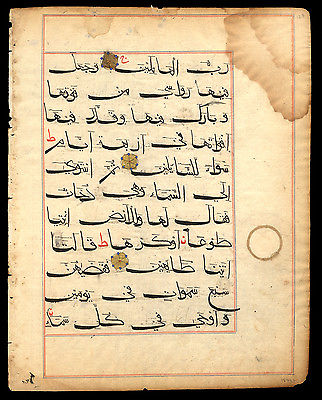 رب العالمين وجعل
فيها رواسي من فوقها
وبارك فيها وقدر فيها
اقواتها في اربعة ايام
سواء للسائلين ثم استوى
الى السماء وهي دخان
فقال لها وللارض ائتيا
طوعا او كرها قالتا
اتينا طائعين فقضيهن
سبع سموات في يومين
و اوحى في كل سماء